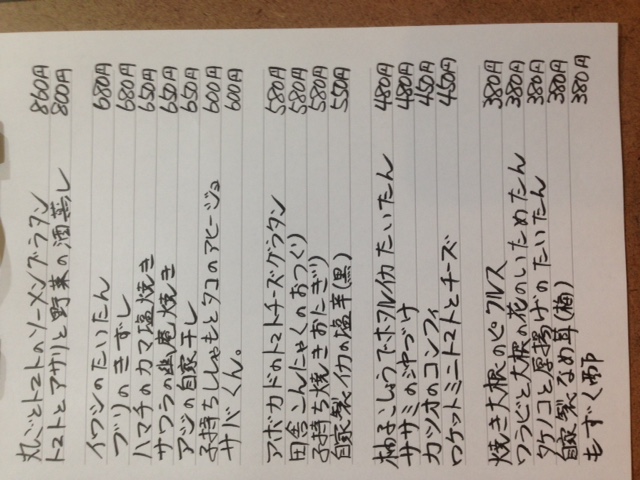 丸ごとトマトのソーメングラタン 860円
トマトとアサリと野菜の酒蒸し 800円
イワシのたいたん 680円
ブリのきずし 680円
ハマチのカマ塩焼き 650円
サワラの幽庵焼き 650円
アジの自家干し 650円
子持ちししゃもとタコのアヒージョ 600円
サバくん。 600円
アボカドのトマトチーズグラタン 580円
田舎こんにゃくのおつくり 580円
子持ち焼きおにぎり 580円
自家製イカの塩辛(黒) 550円
柚子こしょうでホタルイカたいたん 480円
ササミの冲づけ 480円
カツオのコンフィ 450円
ロケットミニトマトとチーズ 450円
焼き大根のピクルス 380円
ワラビと大根の花のいためたん 380円
タケノコと厚揚げのたいたん 380円
自家製なめ茸(梅) 380円
もずく 380円